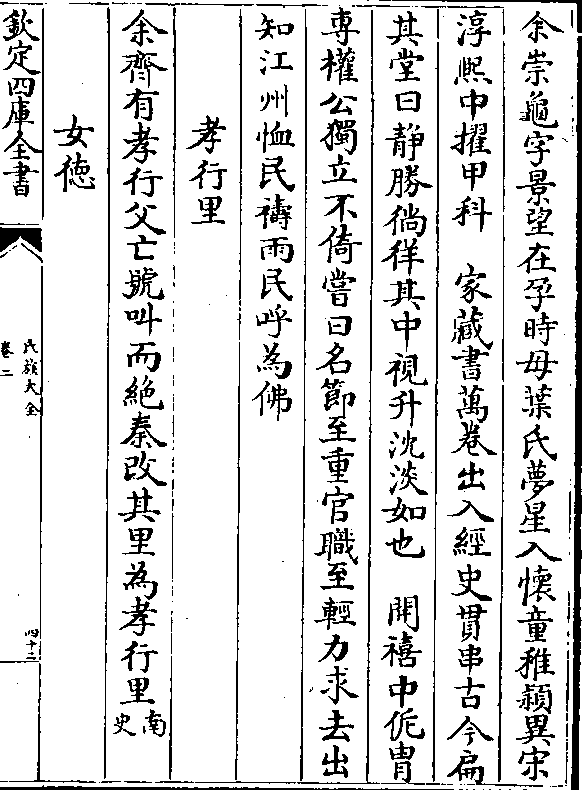 余崇龜字景望在孕時母葉氏夢星入懷童稚頴異宋
淳熙中擢甲科　家藏書萬卷出入經史貫串古今扁
其堂曰静勝徜徉其中視升沈淡如也　開禧中侂胄
專權公獨立不倚嘗曰名節至重官職至輕力求去出
知江州恤民禱雨民呼為佛
孝行里
余齊有孝行父亡號叫而絶奏改其里為孝行里南史
女德
欽定四庫全書
氏族大全
卷二
四十二